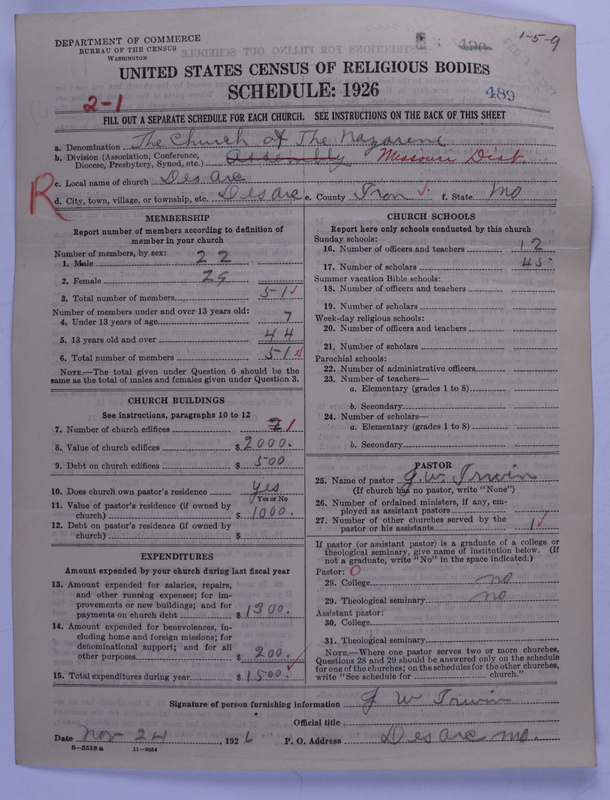 1-5-9
DEPARTMENT OF COMMERCE
BUREAU OF THE CENSUS
WASHINGTON
UNITED STATES CENSUS OF RELIGIOUS BODIES
SCHEDULE: 1926
489
2-1
FILL OUT A SEPARATE SCHEDULE FOR EACH CHURCH. SEE INSTRUCTIONS ON THE BACK OF THIS SHEET
a. Denomination The Church of The Nazarene
b. Division (Association, Conference, Diocese, Presbytery, Synod, etc.) Assembly Missouri Dist.
c. Local name of church Des Arc
R
d. City, town, village, or township, etc. Des Arc e. County Iron f. State Mo
MEMBERSHIP
Report number of members according to definition of
member in your church
Number of members, by sex:
1. Male 22
2. Female 29
3. Total number of members 51
Number of members under and over 13 years old:
4. Under 13 years of age 7
5. 13 years old and over 44
6. Total number of members 51
NOTE.—The total given under Question 6 should be the
same as the total of males and females given under Question 3.
CHURCH BUILDINGS
See instructions, paragraphs 10 to 12
7. Number of church edifices 1
8. Value of church edifices $ 2000.
9. Debt on church edifices $ 500
10. Does church own pastor's residence yes
Yes or No
11. Value of pastor's residence (if owned by
church) $ 1000.
12. Debt on pastor's residence (if owned by
church) $
EXPENDITURES
Amount expended by your church during last fiscal year
13. Amount expended for salaries, repairs,
and other running expenses; for im-
provements or new buildings; and for
payments on church debt $ 1300.
14. Amount expended for benevolences, in-
cluding home and foreign missions; for
denominational support; and for all
other purposes $ 200.
15. Total expenditures during year $ 1500.
CHURCH SCHOOLS
Report here only schools conducted by this church
Sunday schools:
16. Number of officers and teachers 12
17. Number of scholars 45
Summer vacation Bible schools:
18. Number of officers and teachers
19. Number of scholars
Week-day religious schools:
20. Number of officers and teachers
21. Number of scholars
Parochial schools:
22. Number of administrative officers
23. Number of teachers—
a. Elementary (grades 1 to 8)
b. Secondary
24. Number of scholars—
a. Elementary (grades 1 to 8)
b. Secondary
PASTOR
25. Name of pastor J. W. Irwin
(If church has no pastor, write "None")
26. Number of ordained ministers, if any, em-
ployed as assistant pastors
27. Number of other churches served by the
pastor or his assistants 1
If pastor (or assistant pastor) is a graduate of a college or
theological seminary, give name of institution below. (If
not a graduate, write "No" in the space indicated.)
Pastor: O
28. College no
29. Theological seminary no
Assistant pastor:
30. College
31. Theological seminary
NOTE.—Where one pastor serves two or more churches,
Questions 28 and 29 should be answered only on the schedule
for one of the churches; on the schedules for the other churches,
write "See schedule for church."
Signature of person furnishing information J W Irwin
Official title
Date Nov 24, 1926 P. O. Address Des Arc Mo.
8-5518 a 11-9034